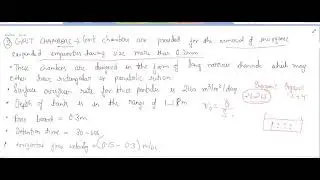 ② GRIT CHAMBERS → Grit chambers are provided for the removal of inorganic
suspended impurities having size more than 0.2mm
• These chambers are designed in the form of long narrow channels which may
either have rectangular or parabolic section
• Surface overflow rate for this particles is 2160 m³/m²/day
• Depth of tank is in the range of 1-1.8m
• Free board = 0.3m
• Detention time = 30-60s
velocity = (0.15 - 0.3) m/sec
Inorganic Organic